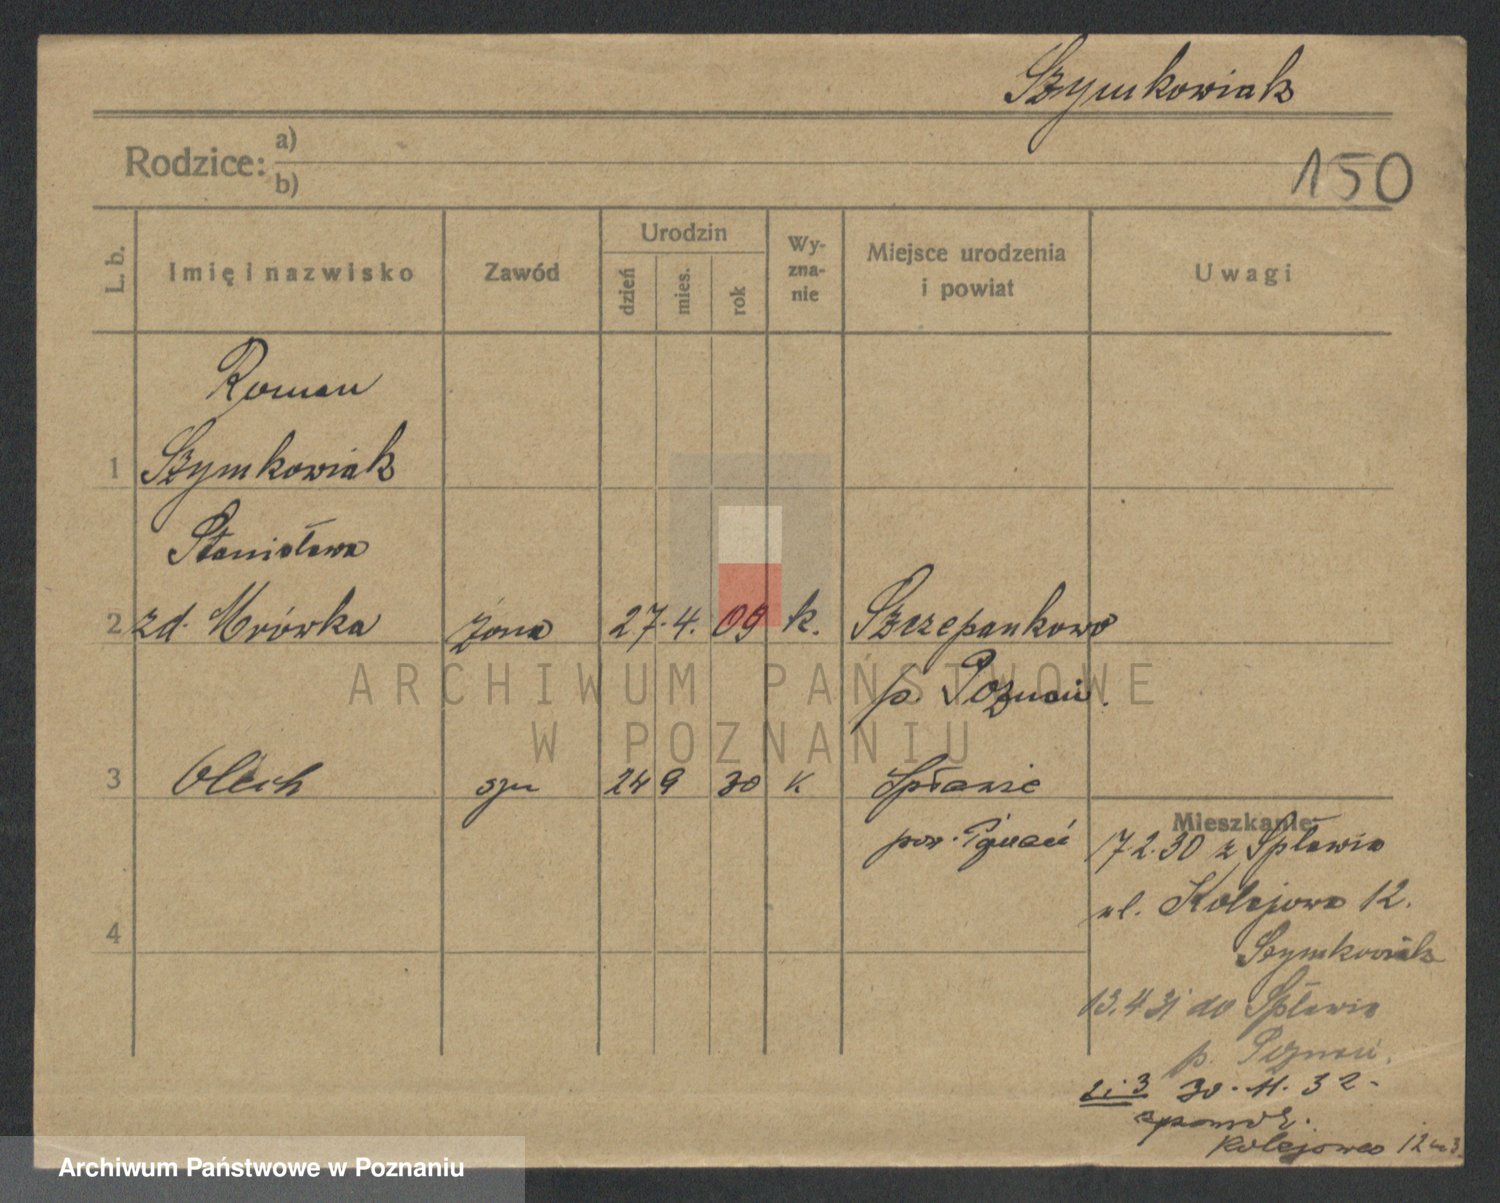 Szymkowiak
Rodzice: a)
b)
150
L. b.
Imię i nazwisko
Zawód
Urodzin
dzień
mies.
rok
Wy-
zna-
nie
Miejsce urodzenia
i powiat
Uwagi
Roman
1 Szymkowiak
Stanisława
2 zd. Mrówka żona 27. 4. 09 k. Szczepankowo
p. Poznań.
ARCHIWUM PAŃSTWOWE
W POZNANIU
3 Olech syn 24 9 30 k Spławie
pow. Poznań
Mieszkanie
17 2.30 z Spławia
ul. Kolejowa 12.
4
Szymkowiak
13.4 31 do Spławia
p. Poznań.
2 i 3 30. 11. 32.
Kolejowa 12
Archiwum Państwowe w Poznaniu